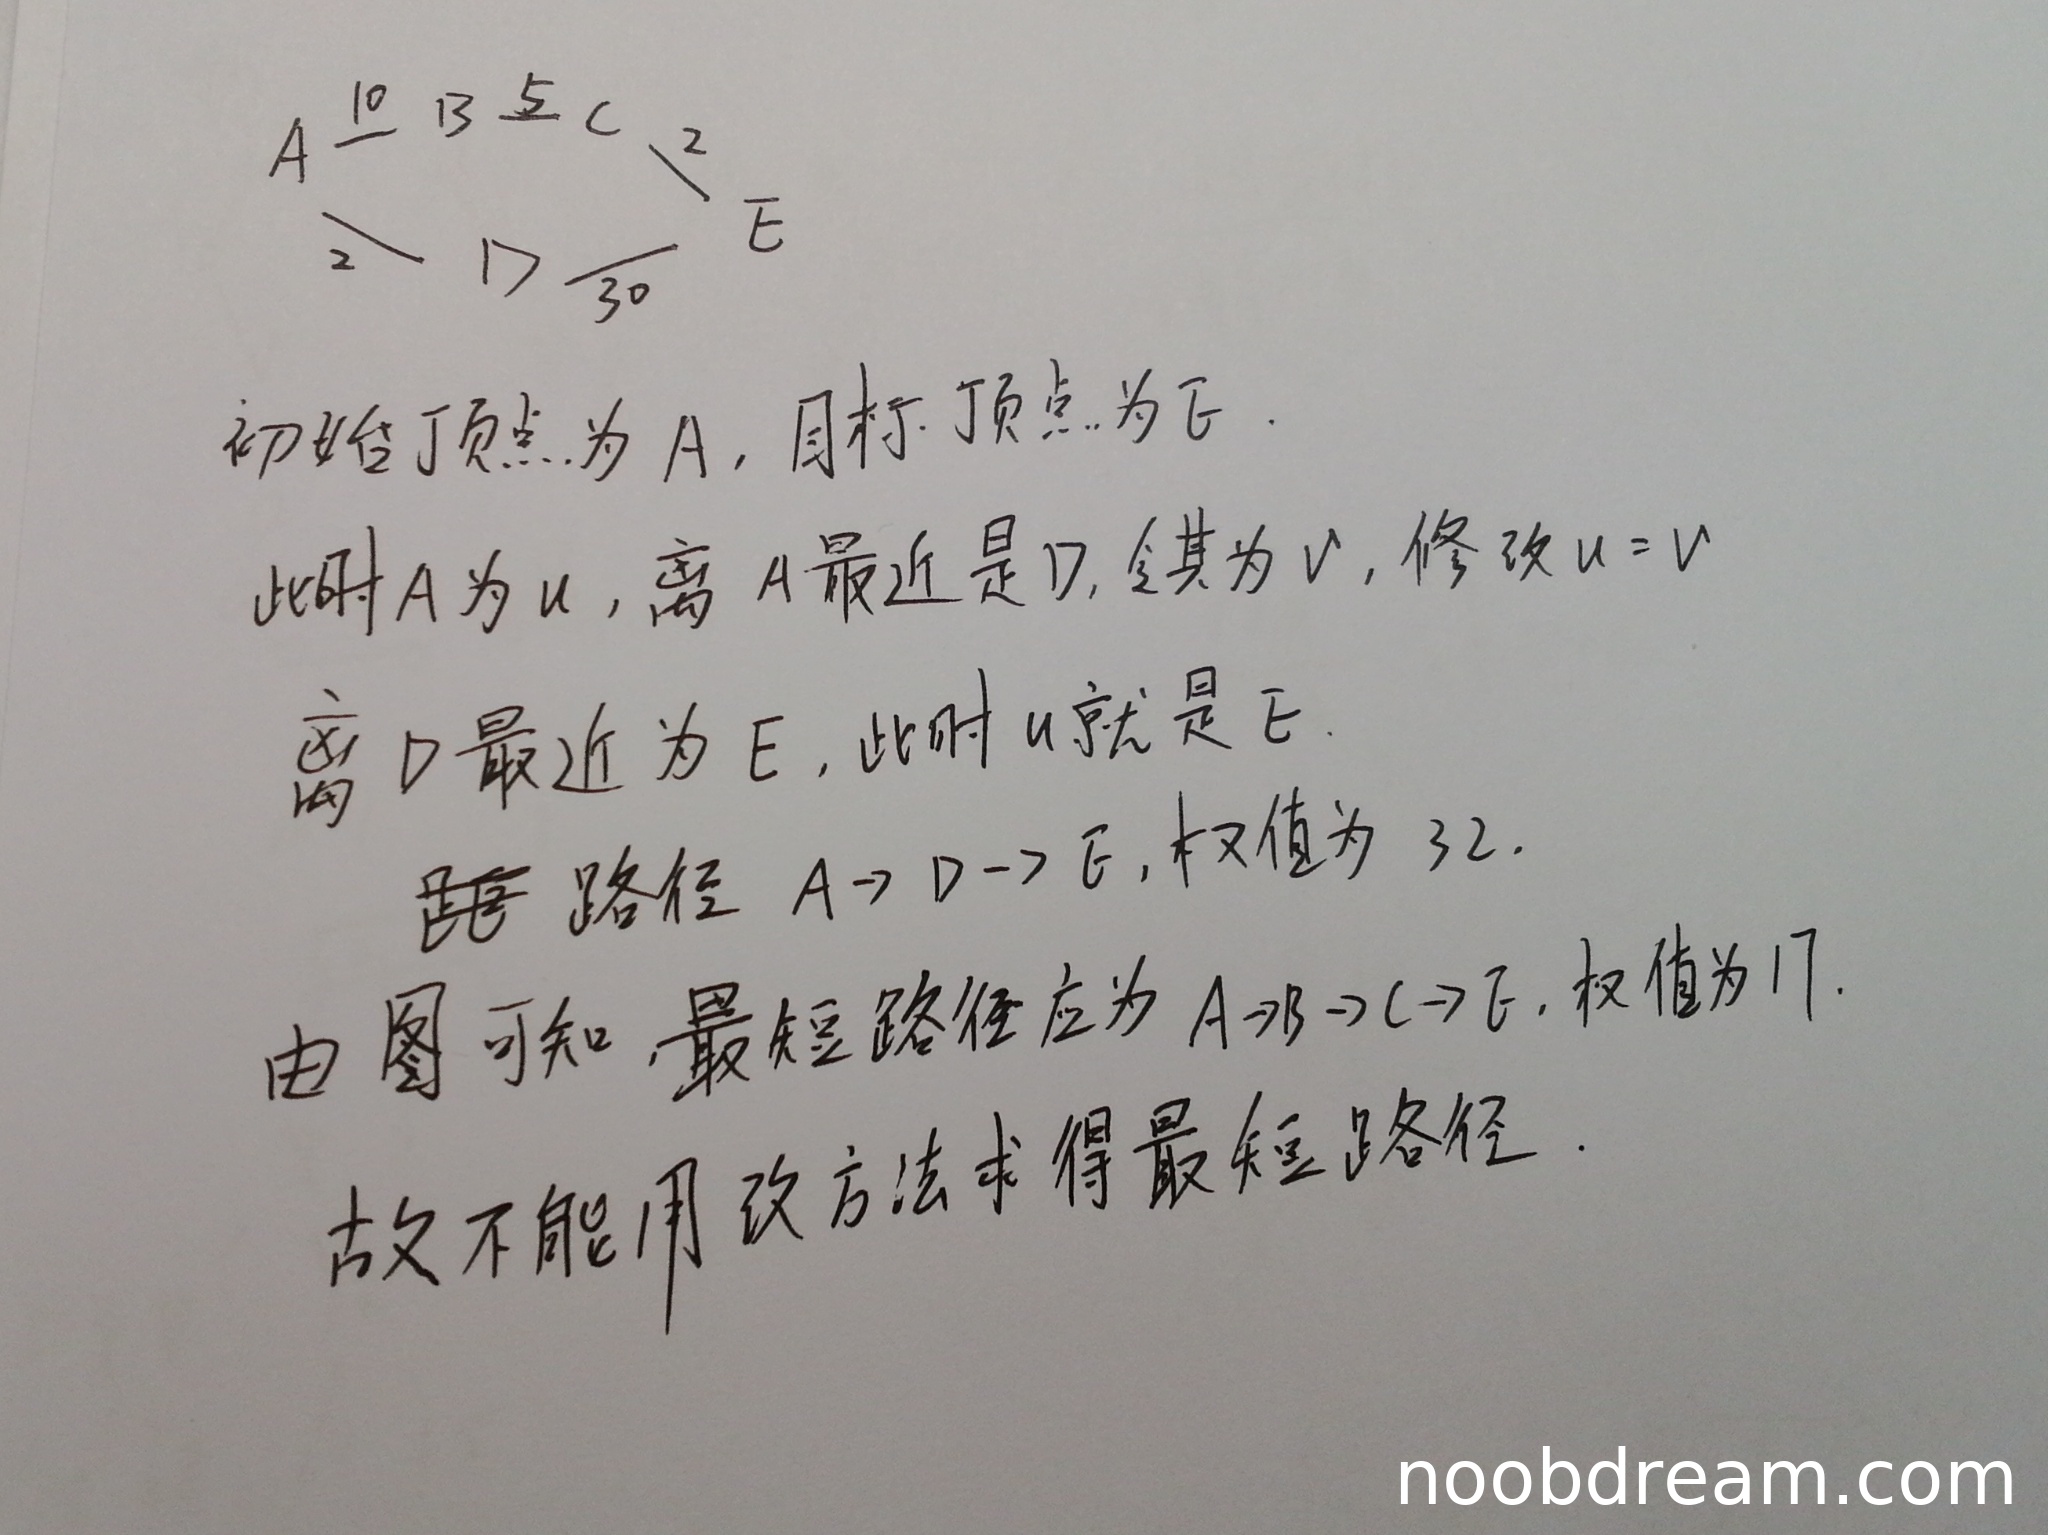 A 10 B 5 C 2
E
2 D 30
初始顶点为 A，目标顶点为E．
此时A为u，离 A最近是D，令其为v，修改u=v
离 D最近为 E，此时u就是 E．
路径 A→D→E，权值为 32．
由图可知，最短路径应为 A→B→C→E，权值为17．
故不能用改方法求得最短路径．
noobdream.com